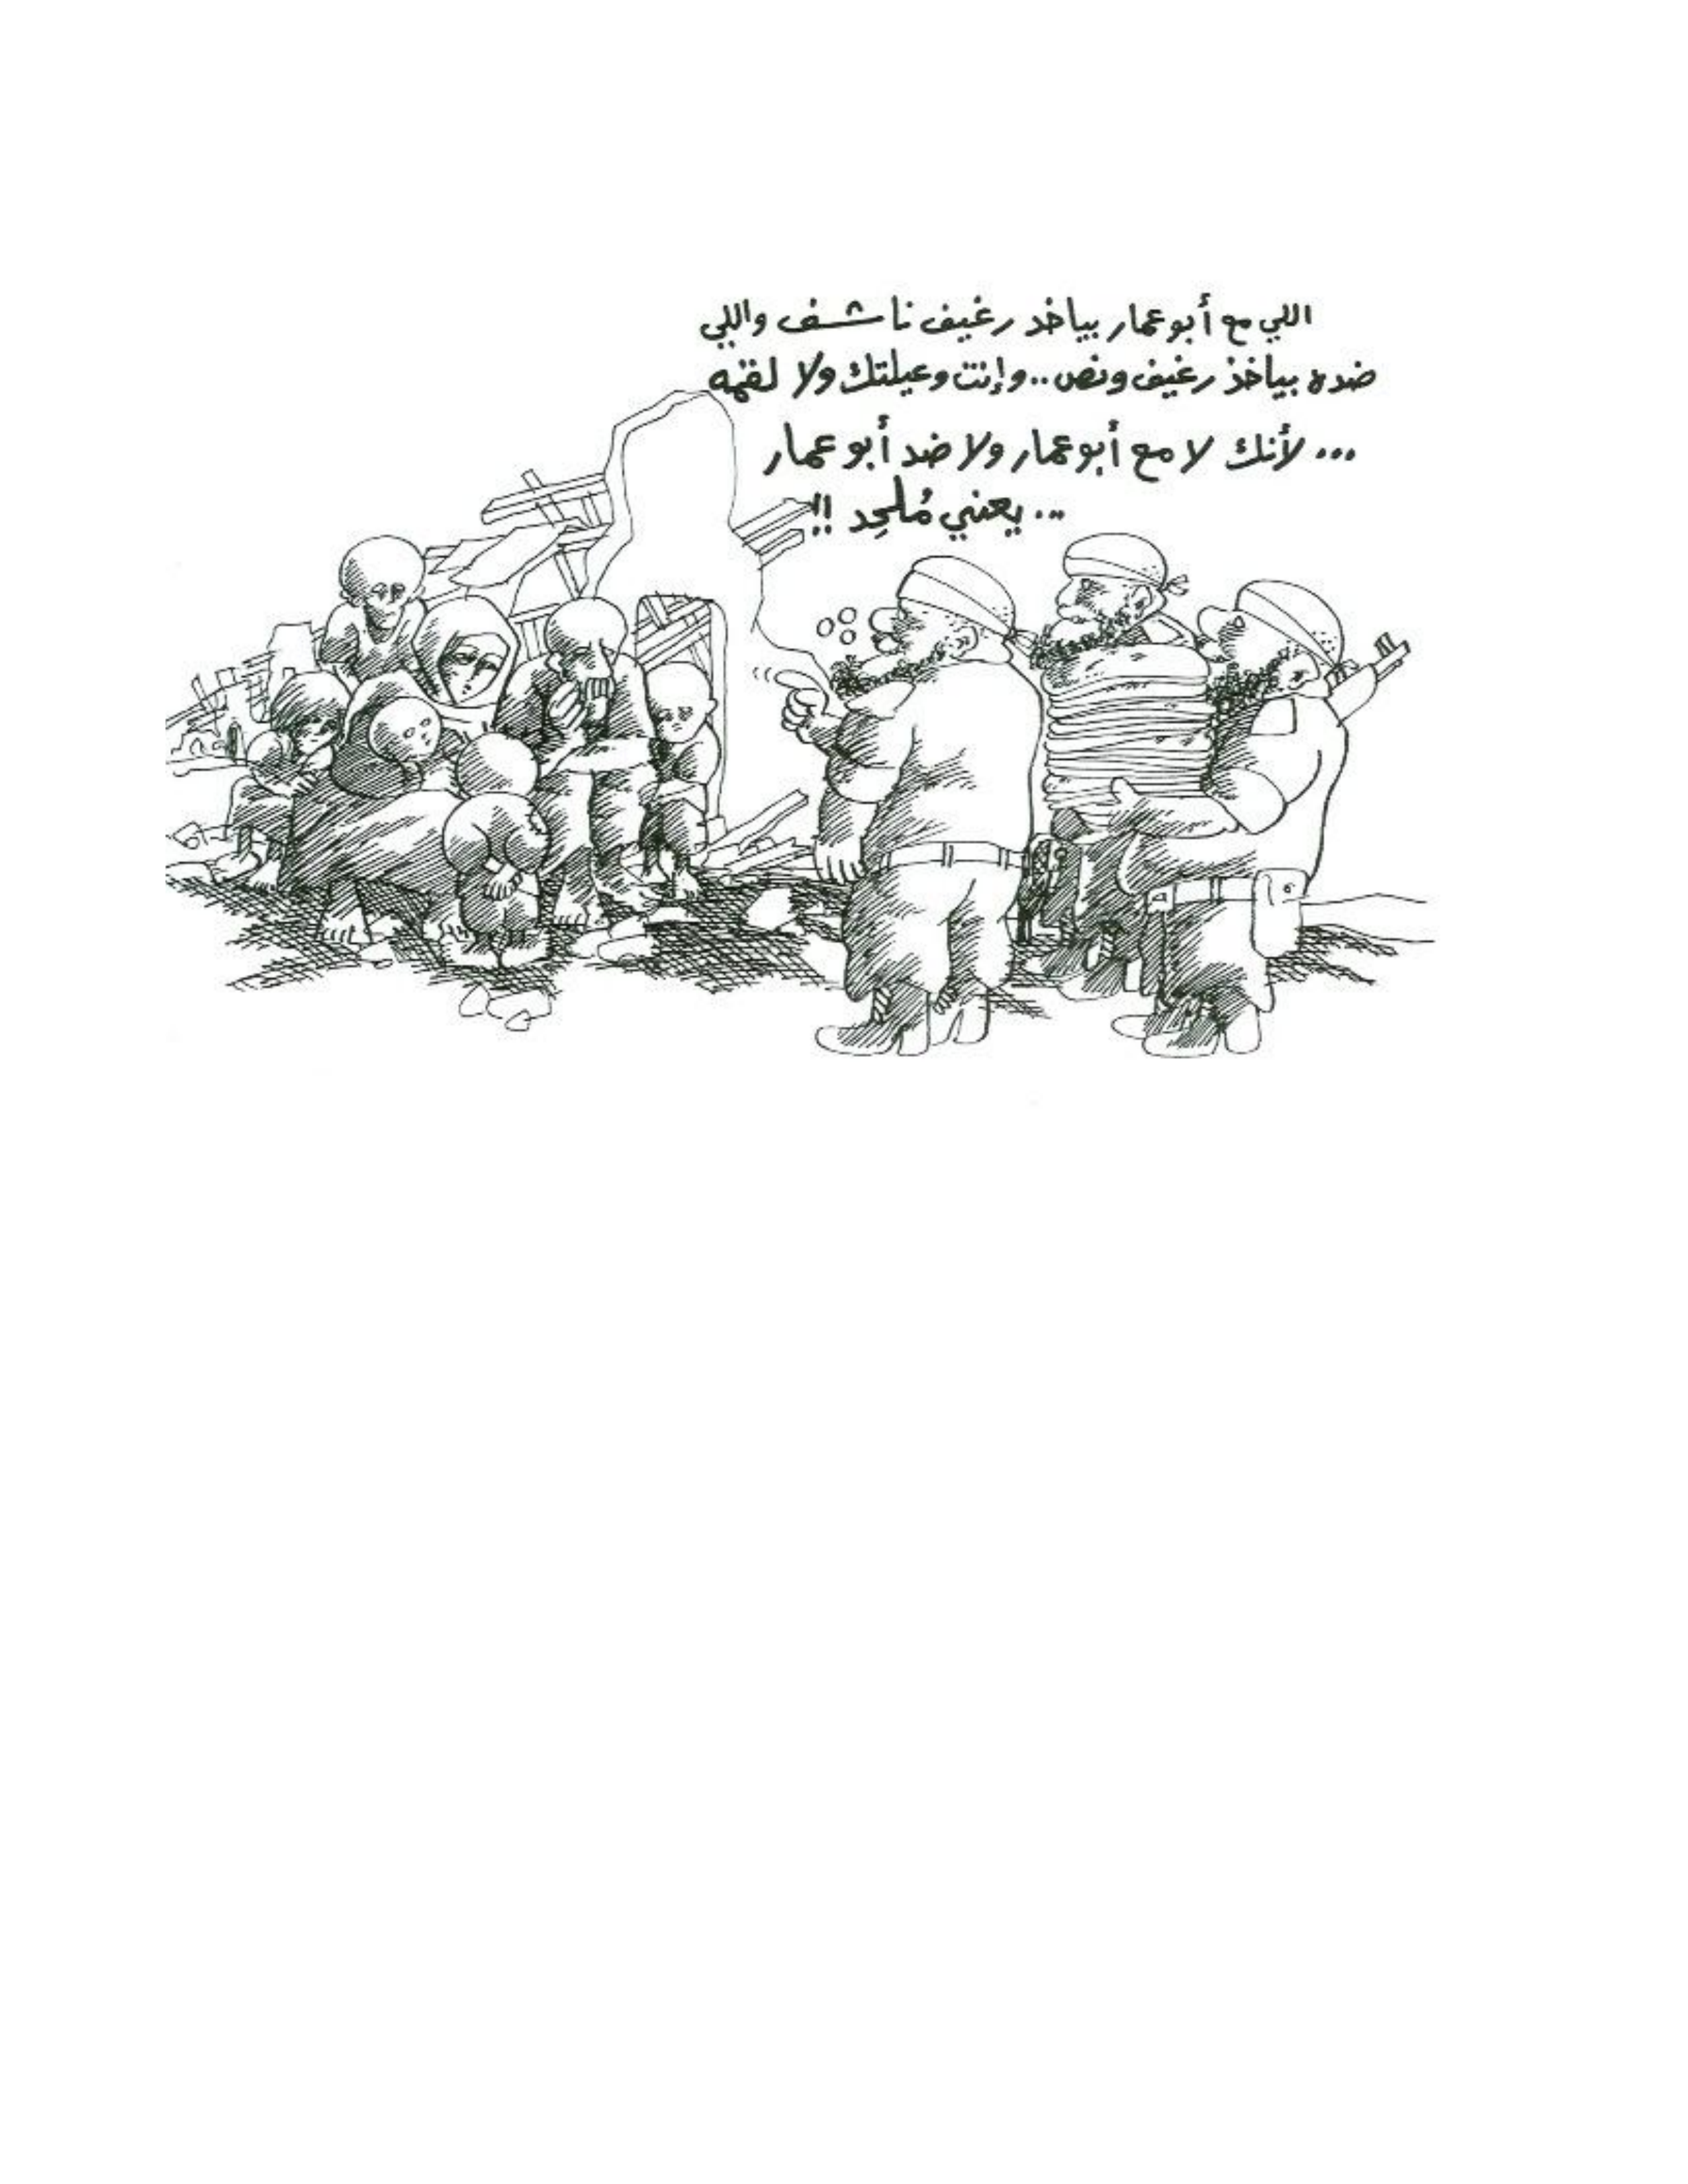 اللي مع أبو عمار بياخد رغيف ناشف واللي
ضده بياخذ رغيف ونص.. وإنت وعيلتك ولا لقمه
... لأنك لا مع أبو عمار ولا ضد أبو عمار
... يعني مُلحِد !!